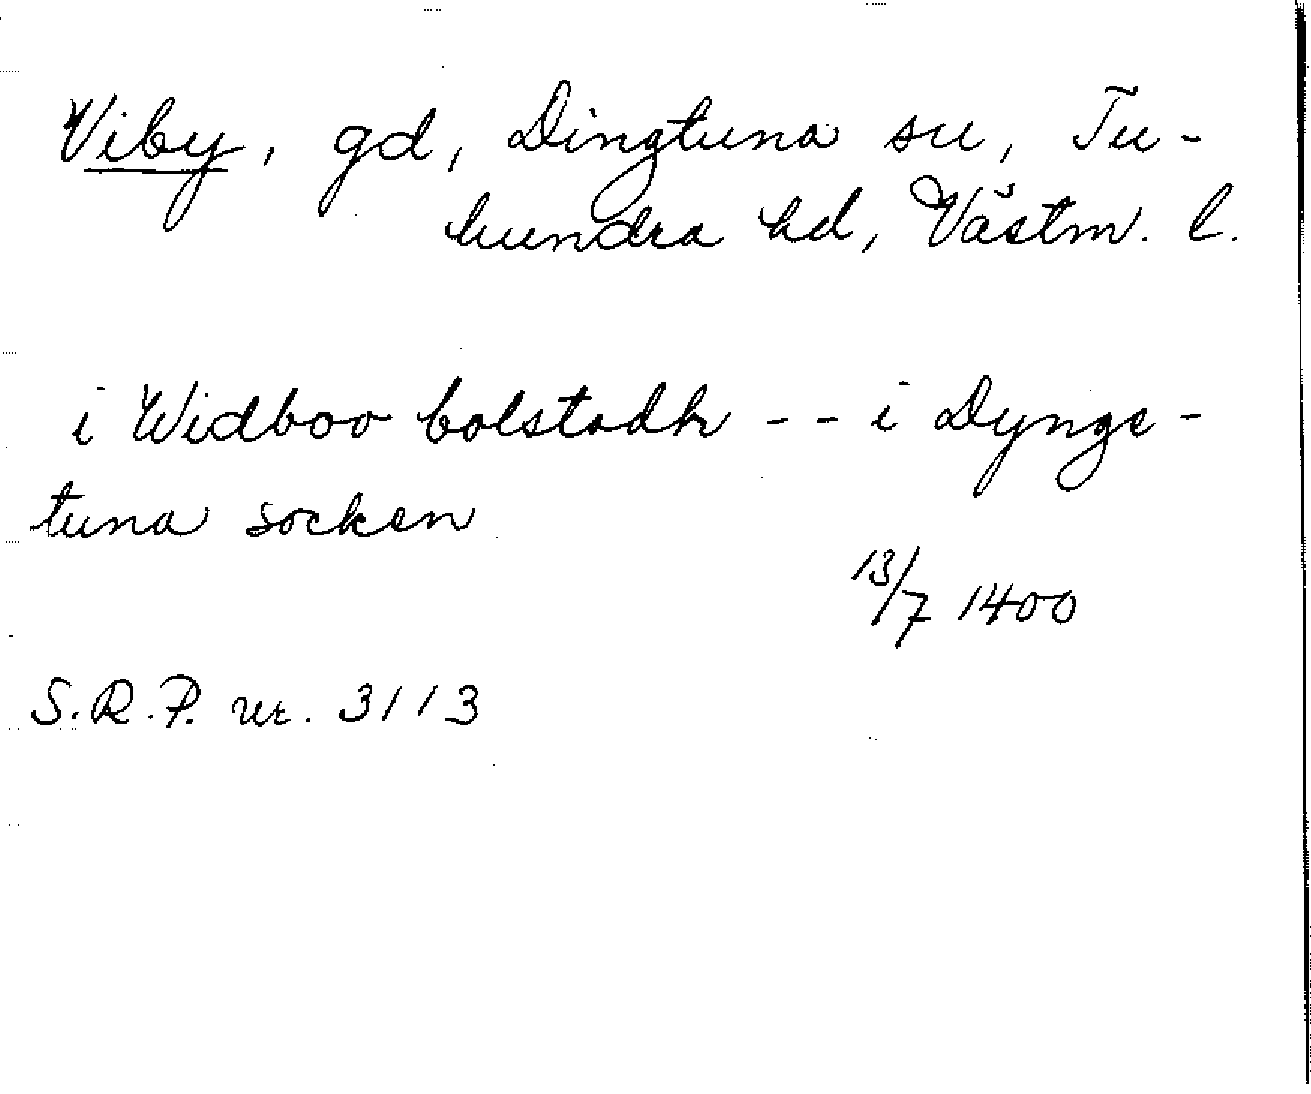 Viby, gd, Dingtuna sn, Tu-
hundra hd, Västm. l.
i Widboo bolstadh - - i Dynge-
tuna socken
13/7 1400
S.R.P. nr. 3113